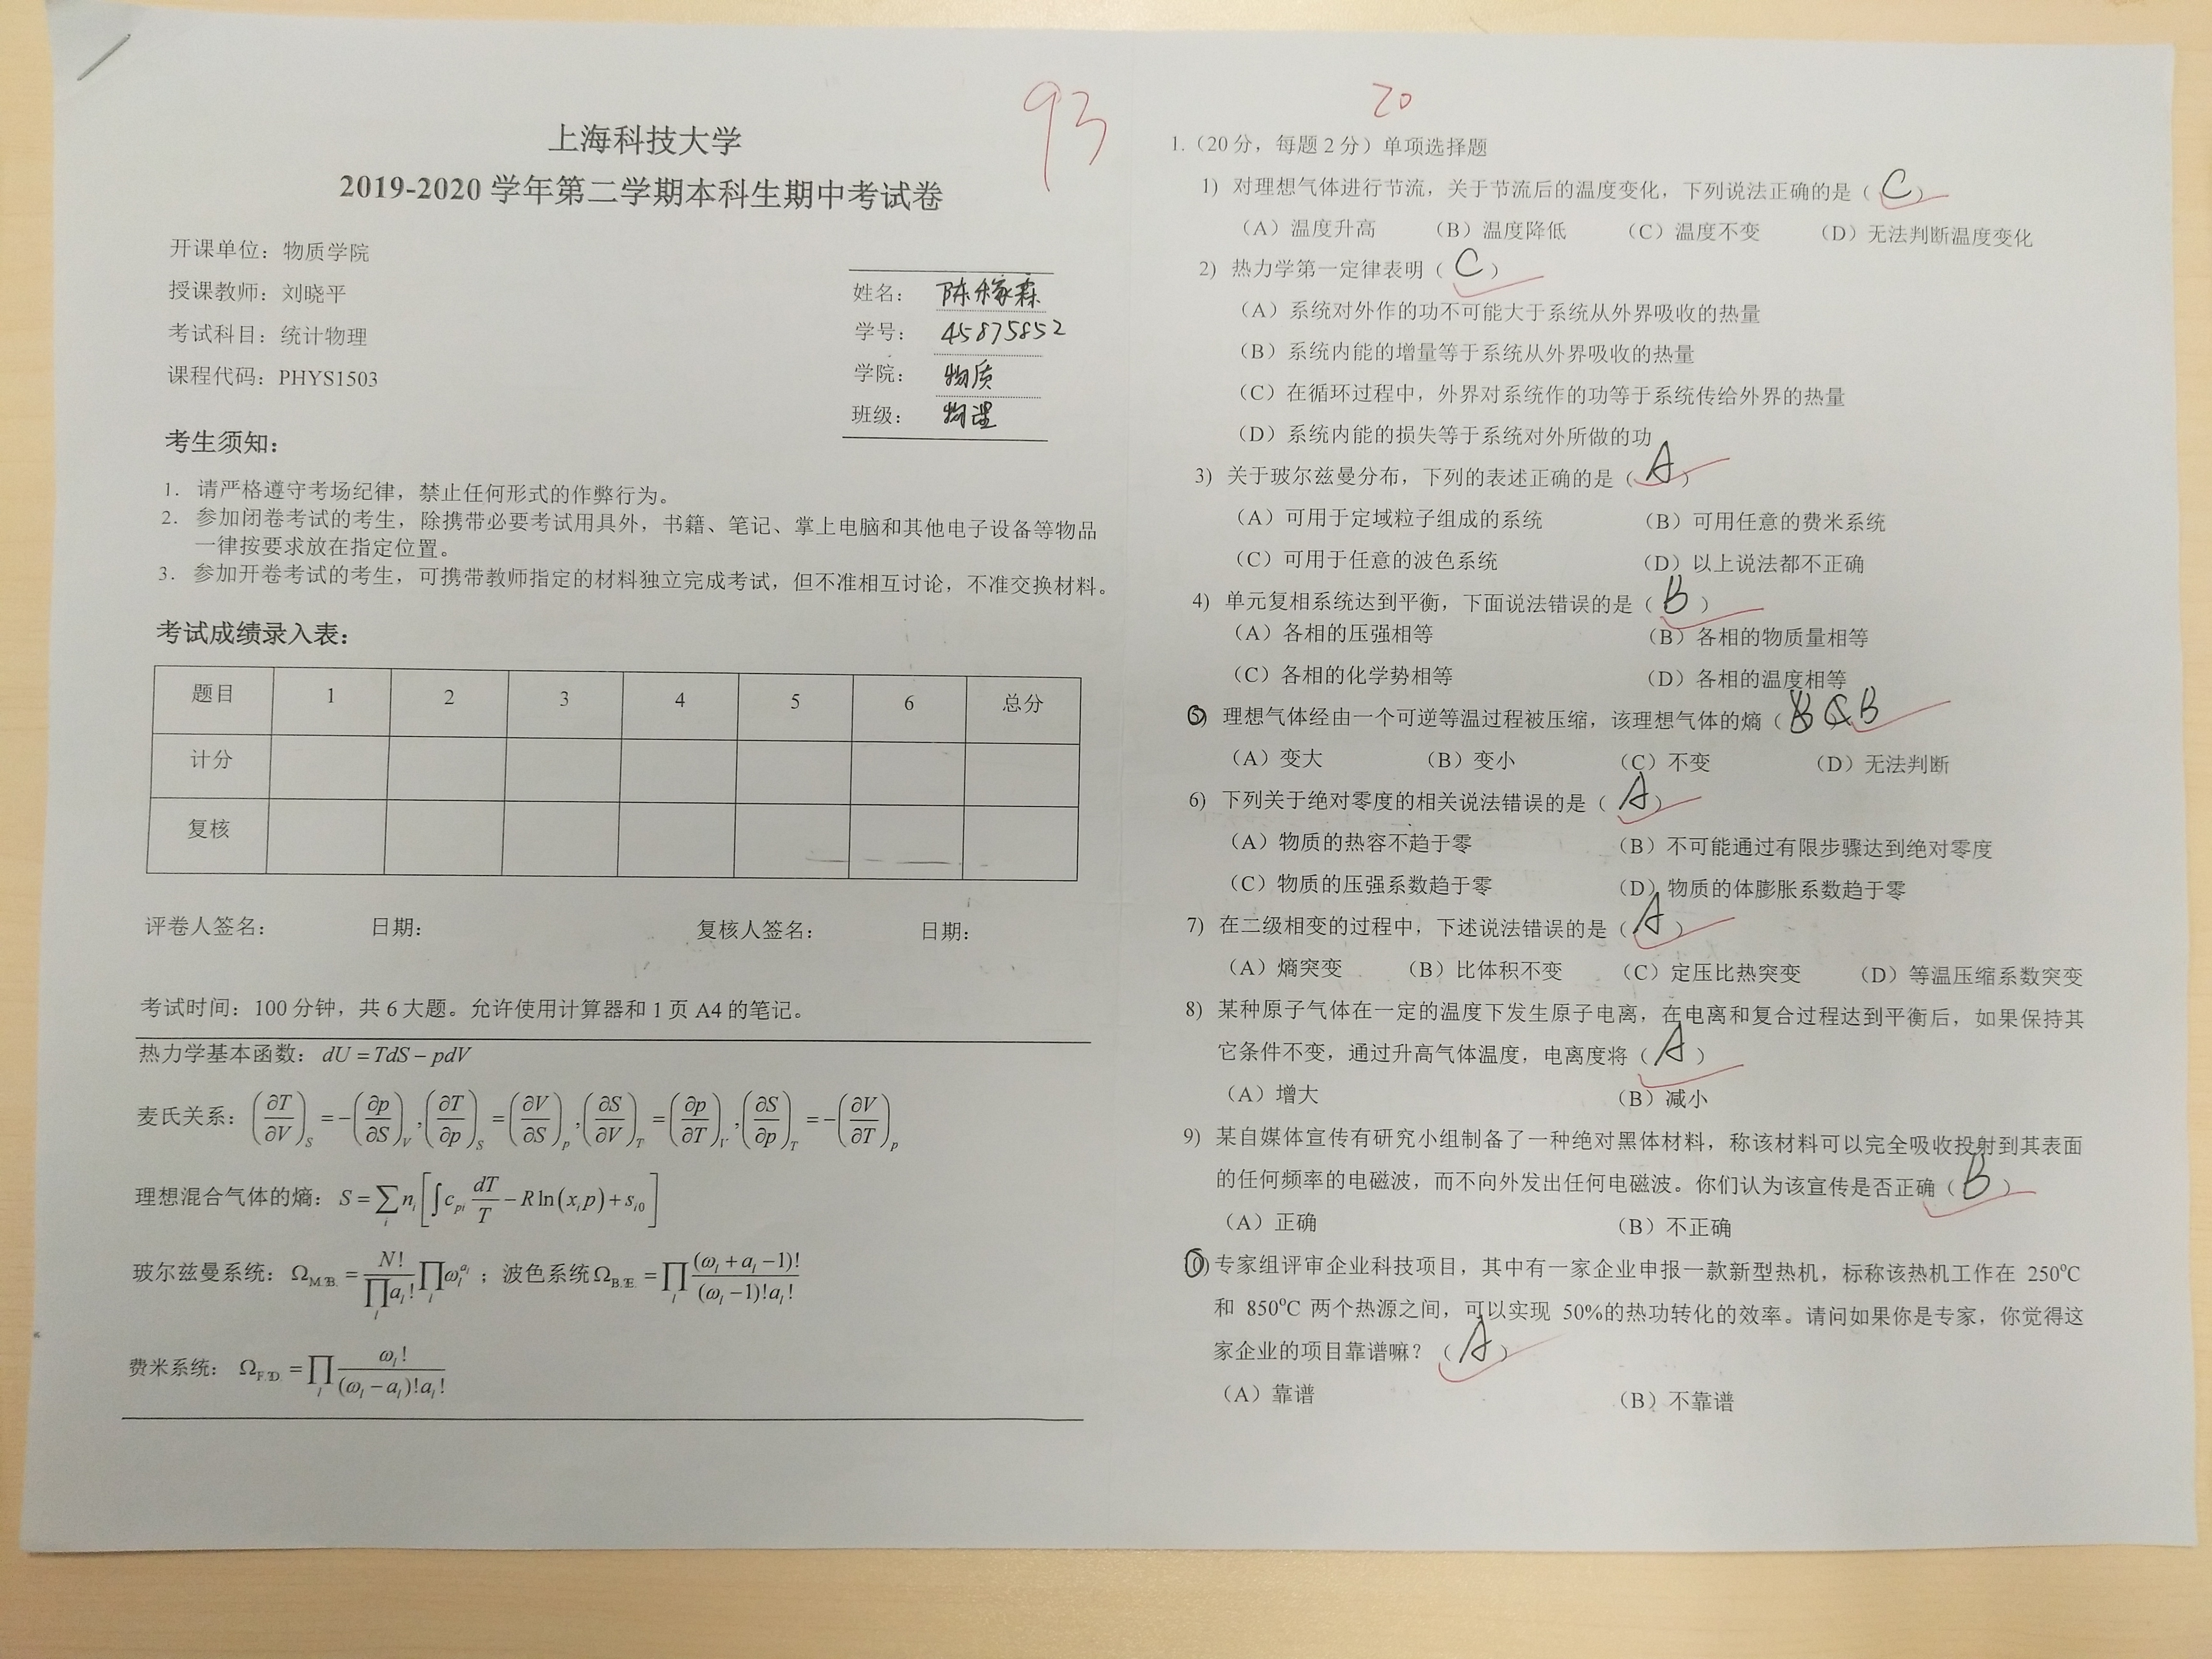 上海科技大学
2019-2020 学年第二学期本科生期中考试卷
93
开课单位：物质学院
授课教师：刘晓平
考试科目：统计物理
课程代码：PHYS1503
姓名：陈稼霖
学号：45875852
学院：物质
班级：物理
考生须知：
1. 请严格遵守考场纪律，禁止任何形式的作弊行为。
2. 参加闭卷考试的考生，除携带必要考试用具外，书籍、笔记、掌上电脑和其他电子设备等物品
一律按要求放在指定位置。
3. 参加开卷考试的考生，可携带教师指定的材料独立完成考试，但不准相互讨论，不准交换材料。
考试成绩录入表：
题目 1 2 3 4 5 6 总分
计分
复核
评卷人签名： 日期： 复核人签名： 日期：
考试时间：100 分钟，共 6 大题。允许使用计算器和 1 页 A4 的笔记。
热力学基本函数：dU = TdS − pdV
麦氏关系：(∂T/∂V)_S = −(∂p/∂S)_V , (∂T/∂p)_S = (∂V/∂S)_p , (∂S/∂V)_T = (∂p/∂T)_V , (∂S/∂p)_T = −(∂V/∂T)_p
理想混合气体的熵：S = ∑_i n_i [∫c_pi dT/T − R ln(x_i p) + s_i0]
玻尔兹曼系统：Ω_M.B. = N!/∏_l a_l! ∏_l ω_l^{a_l}；波色系统 Ω_B.E. = ∏_l (ω_l + a_l −1)!/(ω_l −1)!a_l!
费米系统：Ω_F.D. = ∏_l ω_l!/(ω_l − a_l)!a_l!
20
1.（20 分，每题 2 分）单项选择题
1) 对理想气体进行节流，关于节流后的温度变化，下列说法正确的是（ C ）
（A）温度升高 （B）温度降低 （C）温度不变 （D）无法判断温度变化
2) 热力学第一定律表明（ C ）
（A）系统对外作的功不可能大于系统从外界吸收的热量
（B）系统内能的增量等于系统从外界吸收的热量
（C）在循环过程中，外界对系统作的功等于系统传给外界的热量
（D）系统内能的损失等于系统对外所做的功
3) 关于玻尔兹曼分布，下列的表述正确的是（ A ）
（A）可用于定域粒子组成的系统 （B）可用任意的费米系统
（C）可用于任意的波色系统 （D）以上说法都不正确
4) 单元复相系统达到平衡，下面说法错误的是（ B ）
（A）各相的压强相等 （B）各相的物质量相等
（C）各相的化学势相等 （D）各相的温度相等
5) 理想气体经由一个可逆等温过程被压缩，该理想气体的熵（ B
（A）变大 （B）变小 （C）不变 （D）无法判断
6) 下列关于绝对零度的相关说法错误的是（ A ）
（A）物质的热容不趋于零 （B）不可能通过有限步骤达到绝对零度
（C）物质的压强系数趋于零 （D）物质的体膨胀系数趋于零
7) 在二级相变的过程中，下述说法错误的是（ A ）
（A）熵突变 （B）比体积不变 （C）定压比热突变 （D）等温压缩系数突变
8) 某种原子气体在一定的温度下发生原子电离，在电离和复合过程达到平衡后，如果保持其
它条件不变，通过升高气体温度，电离度将（ A ）
（A）增大 （B）减小
9) 某自媒体宣传有研究小组制备了一种绝对黑体材料，称该材料可以完全吸收投射到其表面
的任何频率的电磁波，而不向外发出任何电磁波。你们认为该宣传是否正确（ B ）
（A）正确 （B）不正确
10) 专家组评审企业科技项目，其中有一家企业申报一款新型热机，标称该热机工作在 250°C
和 850°C 两个热源之间，可以实现 50%的热功转化的效率。请问如果你是专家，你觉得这
家企业的项目靠谱嘛？（ A ）
（A）靠谱 （B）不靠谱